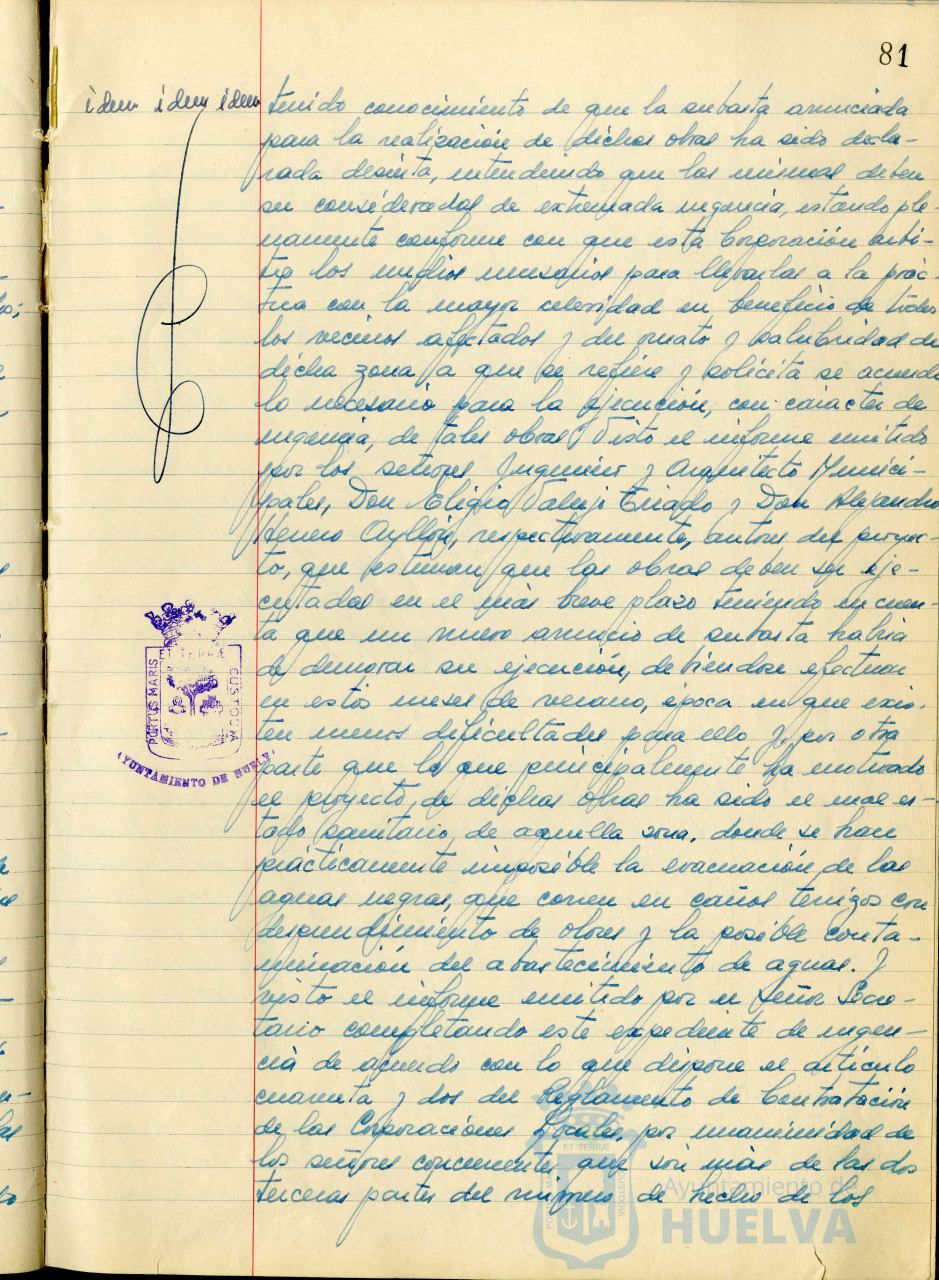 81
idem idem idem
tenido conocimiento de que la subasta anunciada
para la realización de dichas obras ha sido decla-
rada desierta, entendiendo que las mismas deben
ser consideradas de extremada urgencia, estando ple-
namente conforme con que esta Corporación arbi-
tre los medios necesarios para llevarlas a la prác-
tica con la mayor celeridad en beneficio de todos
los vecinos afectados y del ornato y salubridad de
dicha zona a que se refiere y solicita se acuerde
lo necesario para la ejecución, con caracter de
urgencia, de tales obras. Visto el informe emitido
por los señores Ingeniero y Arquitecto Munici-
pales, Don Eligio Criado y Don Alejandro
Herrero Ayllón, respectivamente, autores del proyec-
to, que estiman que las obras deben ser eje-
cutadas en el más breve plazo teniendo en cuen-
ta que un nuevo anuncio de subasta habría
de demorar su ejecución, debiendose efectuar
en estos meses de verano, época en que exis-
ten menos dificultades para ello y por otra
parte que lo que principalmente ha motivado
el proyecto, de dichas obras ha sido el mal es-
tado sanitario, de aquella zona, donde se han
prácticamente imposible la evacuación de las
aguas negras, que corren en caños terrizos con
desprendimiento de olores y la posible conta-
minación del abastecimiento de aguas. Y
visto el informe emitido por el Señor Secre-
tario completando este expediente de urgen-
cia de acuerdo con lo que dispone el artículo
cuarenta y dos del Reglamento de Contratación
de las Corporaciones Locales, por unanimidad de
los señores concurrentes que son más de las dos
terceras partes del número de hecho de los
PORTUS MARIS ET TERRÆ CUSTODIA
AYUNTAMIENTO DE HUELVA
PORTUS MARIS ET TERRÆ CUSTODIA
Ayuntamiento de
HUELVA